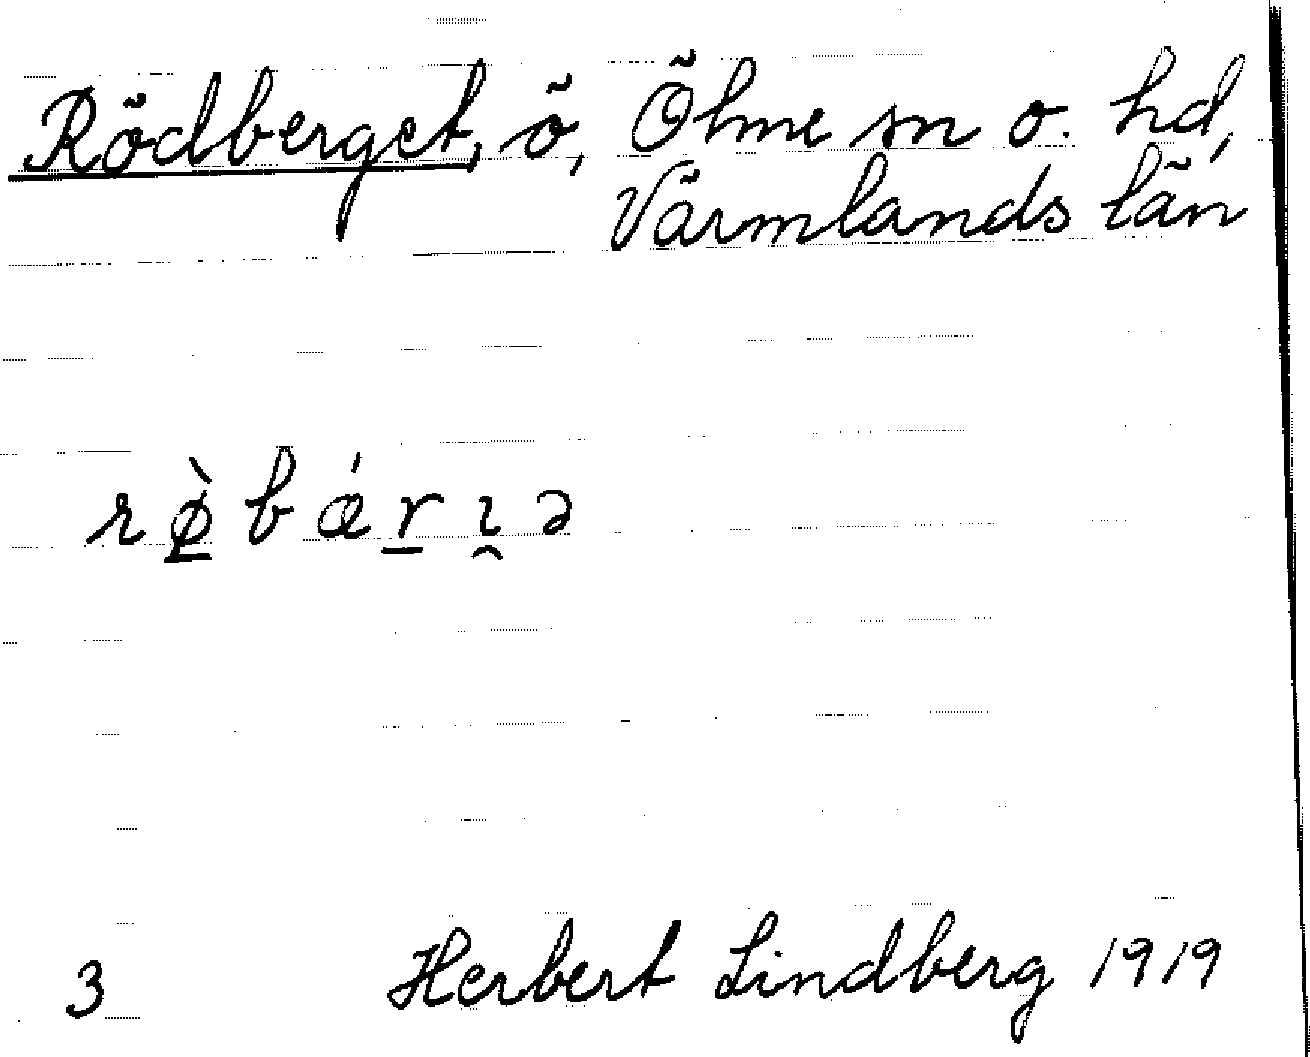 Rödberget, ö, Ölme sn o. hd,
Värmlands län
rø̲̀bǽr̲ı̯ə
3 Herbert Lindberg 1919